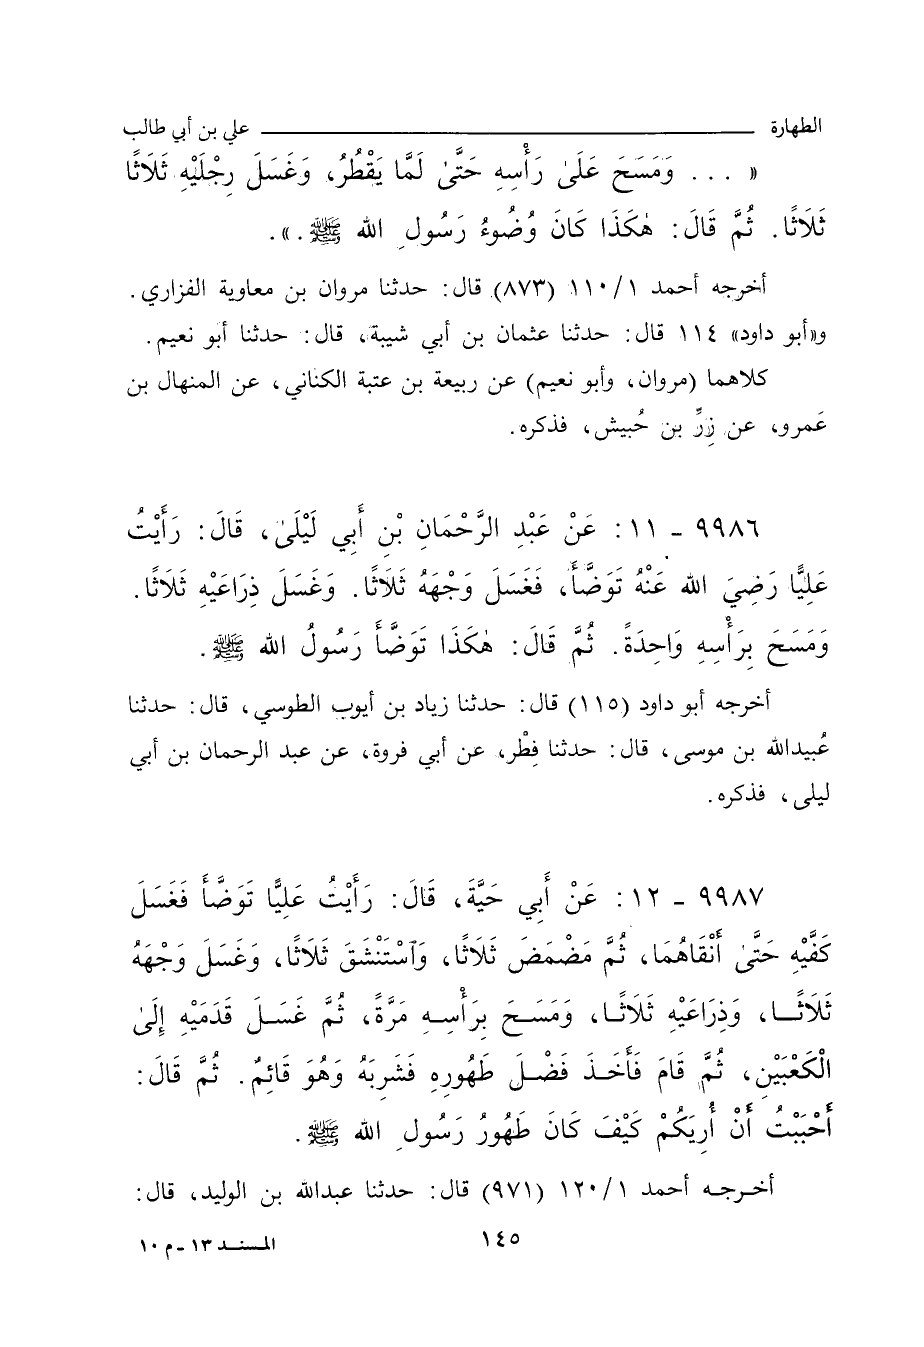 الطهارة ــــــــــ علي بن أبي طالب
« . . . وَمَسَحَ عَلَىٰ رَأْسِهِ حَتَّىٰ لَمَّا يَقْطُرُ، وَغَسَلَ رِجْلَيْهِ ثَلَاثًا
ثَلَاثًا. ثُمَّ قَالَ: هٰكَذَا كَانَ وُضُوءُ رَسُولِ الله ﷺ.».
أخرجه أحمد ١١٠/١ (٨٧٣) قال: حدثنا مروان بن معاوية الفزاري.
و«أبو داود» ١١٤ قال: حدثنا عثمان بن أبي شيبة، قال: حدثنا أبو نعيم.
كلاهما (مروان، وأبو نعيم) عن ربيعة بن عتبة الكناني، عن المنهال بن
عَمرو، عن زِرِّ بن حُبيش، فذكره.
٩٩٨٦ - ١١: عَنْ عَبْدِ الرَّحْمَانِ بْنِ أَبِي لَيْلَىٰ، قَالَ: رَأَيْتُ
عَلِيًّا رَضِيَ الله عَنْهُ تَوَضَّأَ، فَغَسَلَ وَجْهَهُ ثَلَاثًا. وَغَسَلَ ذِرَاعَيْهِ ثَلَاثًا.
وَمَسَحَ بِرَأْسِهِ وَاحِدَةً. ثُمَّ قَالَ: هٰكَذَا تَوَضَّأَ رَسُولُ الله ﷺ.
أخرجه أبو داود (١١٥) قال: حدثنا زياد بن أيوب الطوسي، قال: حدثنا
عُبيدالله بن موسى، قال: حدثنا فِطْر، عن أبي فروة، عن عبد الرحمان بن أبي
ليلى، فذكره.
٩٩٨٧ - ١٢: عَنْ أَبِي حَيَّةَ، قَالَ: رَأَيْتُ عَلِيًّا تَوَضَّأَ فَغَسَلَ
كَفَّيْهِ حَتَّىٰ أَنْقَاهُمَا، ثُمَّ مَضْمَضَ ثَلَاثًا، وَٱسْتَنْشَقَ ثَلَاثًا، وَغَسَلَ وَجْهَهُ
ثَلَاثًا، وَذِرَاعَيْهِ ثَلَاثًا، وَمَسَحَ بِرَأْسِهِ مَرَّةً، ثُمَّ غَسَلَ قَدَمَيْهِ إِلَىٰ
الْكَعْبَيْنِ، ثُمَّ قَامَ فَأَخَذَ فَضْلَ طَهُورِهِ فَشَرِبَهُ وَهُوَ قَائِمٌ. ثُمَّ قَالَ:
أَحْبَبْتُ أَنْ أُرِيَكُمْ كَيْفَ كَانَ طَهُورُ رَسُولِ الله ﷺ.
أخرجه أحمد ١٢٠/١ (٩٧١) قال: حدثنا عبدالله بن الوليد، قال:
١٤٥
المسند ١٣ - م ١٠